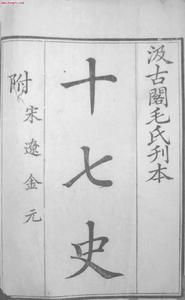 汲古閣毛氏刊本
十七史
附宋遼金元